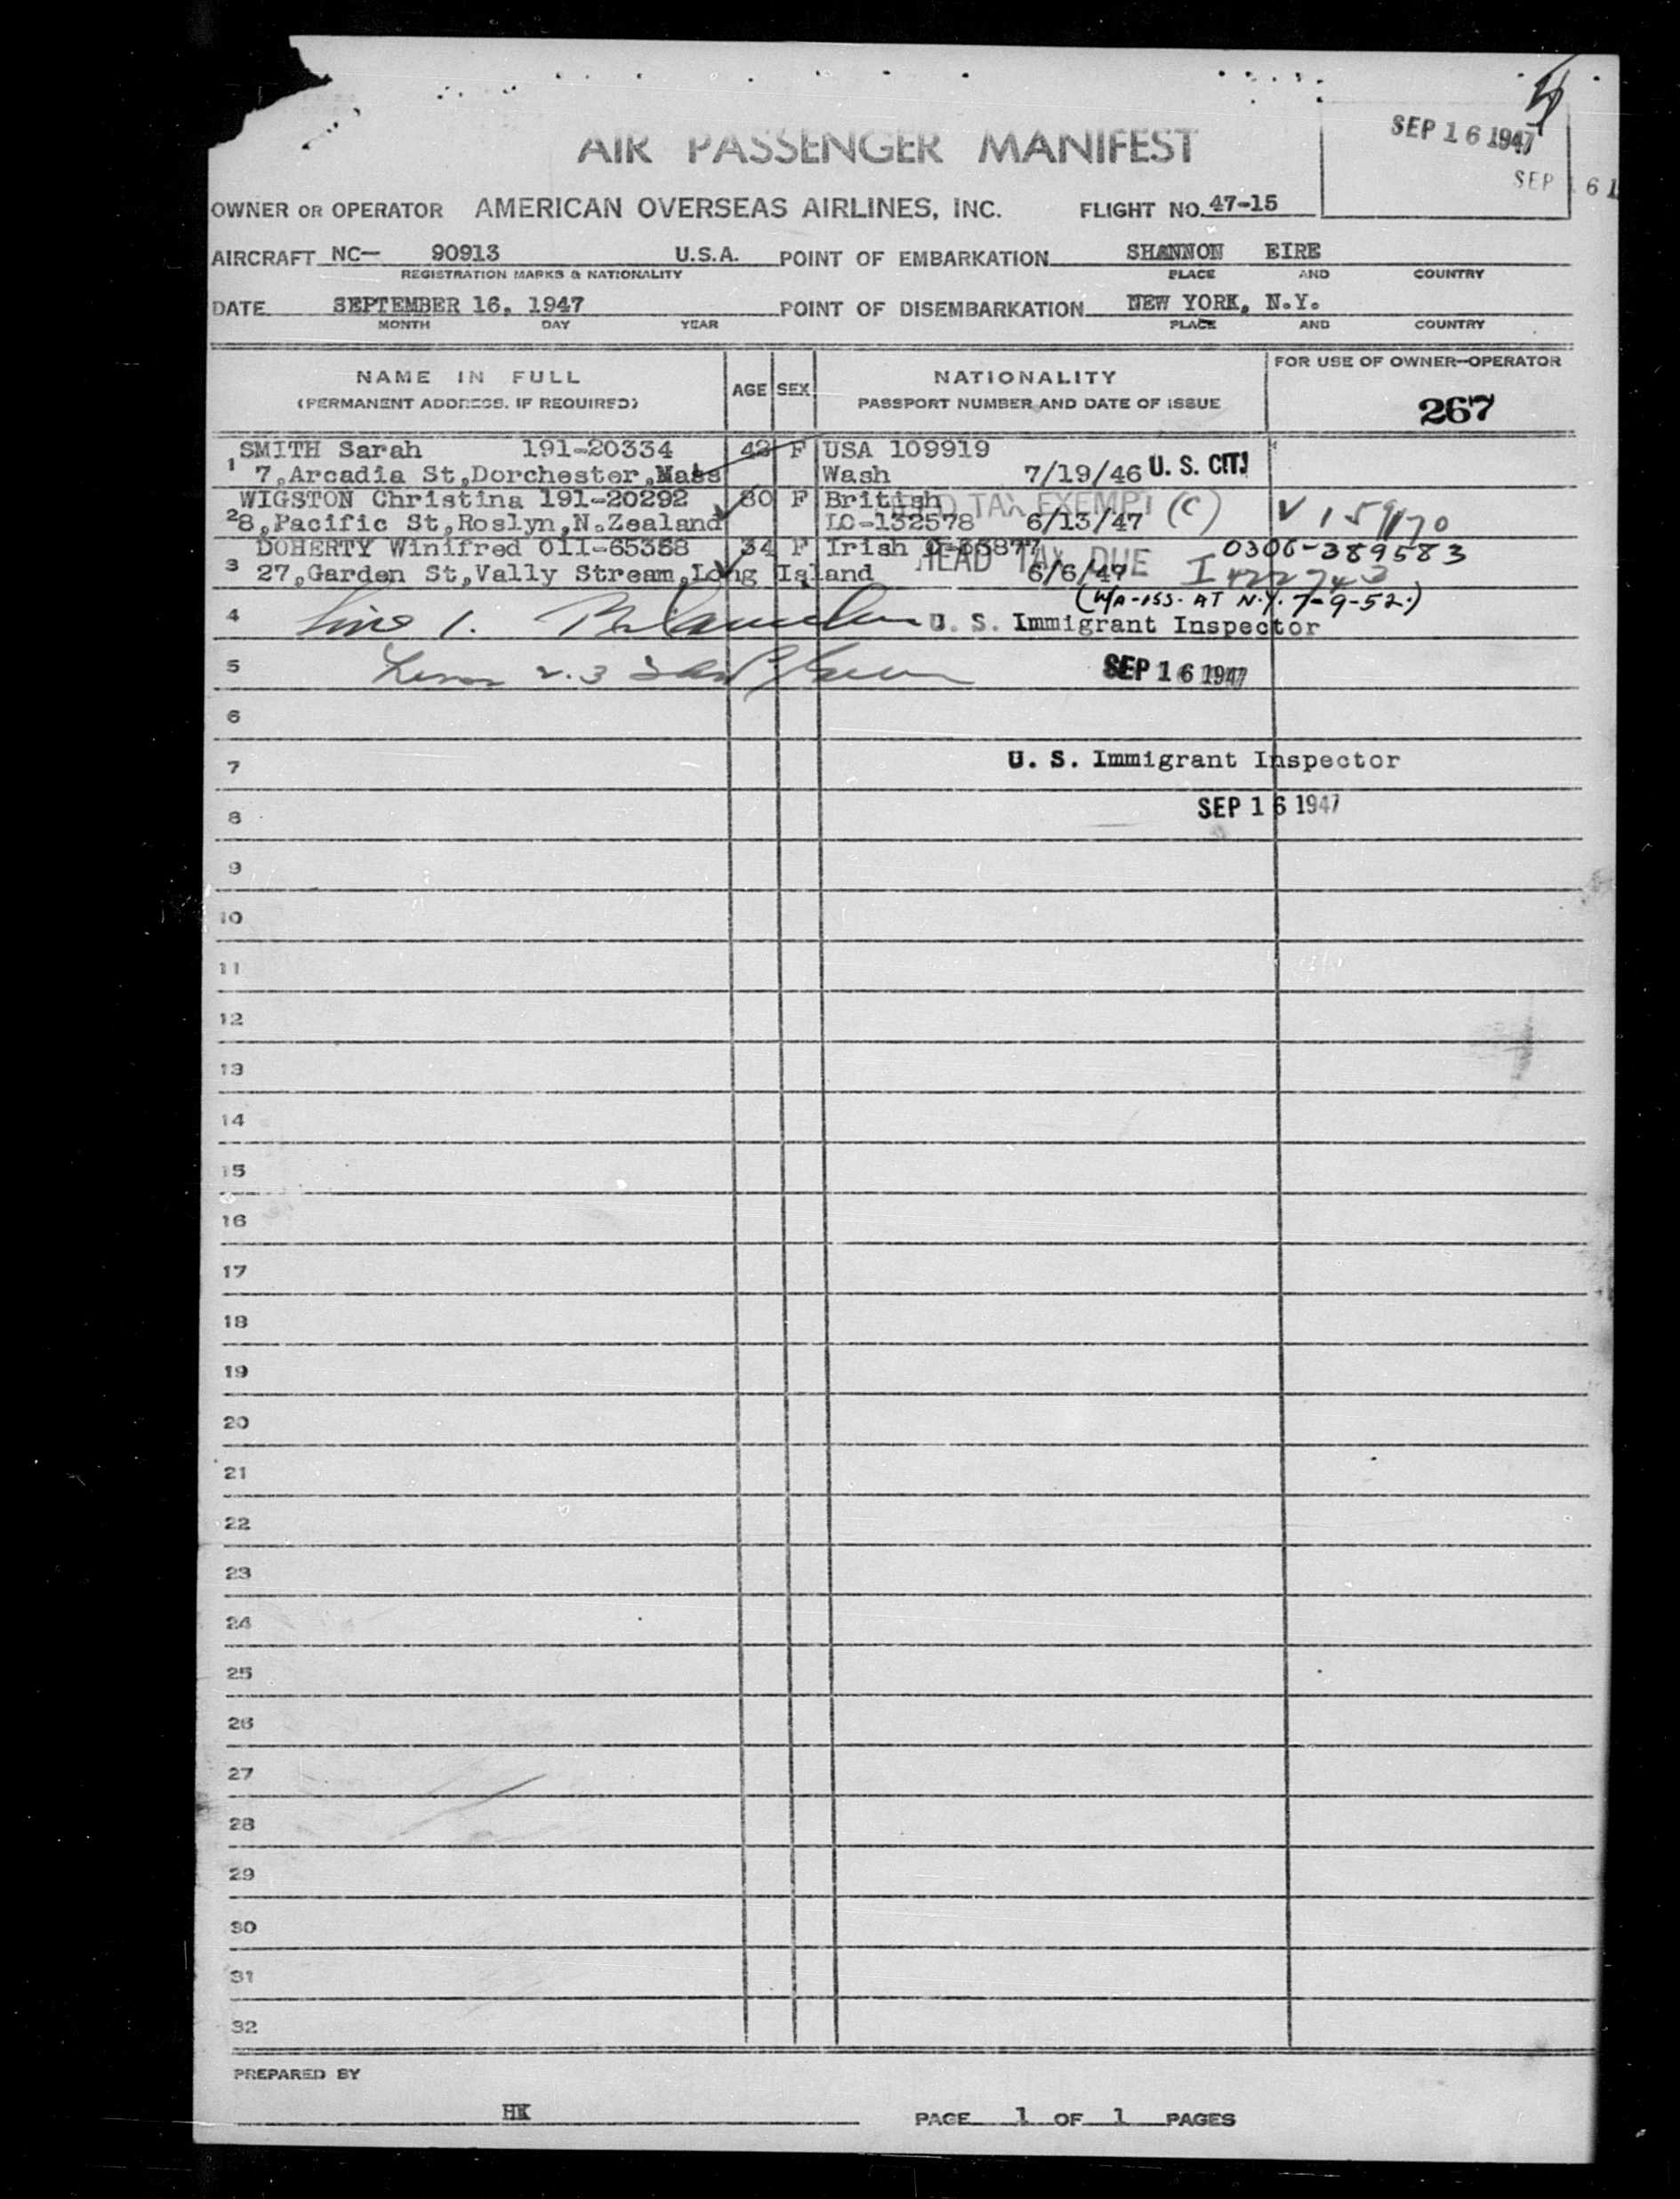 SEP 16 1947
SEP 16 1
AIR PASSENGER MANIFEST
OWNER OR OPERATOR AMERICAN OVERSEAS AIRLINES, INC. FLIGHT NO. 47-15
AIRCRAFT NC- 90913 U.S.A. POINT OF EMBARKATION SHANNON EIRE
REGISTRATION MARKS & NATIONALITY PLACE AND COUNTRY
DATE SEPTEMBER 16, 1947 POINT OF DISEMBARKATION NEW YORK, N.Y.
MONTH DAY YEAR PLACE AND COUNTRY
NAME IN FULL AGE SEX NATIONALITY FOR USE OF OWNER-OPERATOR
(PERMANENT ADDRESS, IF REQUIRED) PASSPORT NUMBER AND DATE OF ISSUE 267
SMITH Sarah 191-20334 42 F USA 109919
1 7,Arcadia St,Dorchester,Mass Wash 7/19/46 U. S. CIT.
WIGSTON Christina 191-20292 80 F British TAX EXEMPT (C)
2 8,Pacific St,Roslyn,N.Zealand LC-132578 6/13/47 V 159170
DOHERTY Winifred 011-65388 34 F Irish 0306-389583
3 27,Garden St,Vally Stream,Long Island HEAD TAX DUE 6/6/47
(W/A-ISS. AT N.Y. 7-9-52.)
4 Line 1. U. S. Immigrant Inspector
5 Lines 2.3 SEP 16 1947
6
7 U. S. Immigrant Inspector
8 SEP 16 1947
9
10
11
12
13
14
15
16
17
18
19
20
21
22
23
24
25
26
27
28
29
30
31
32
PREPARED BY
HK PAGE 1 OF 1 PAGES